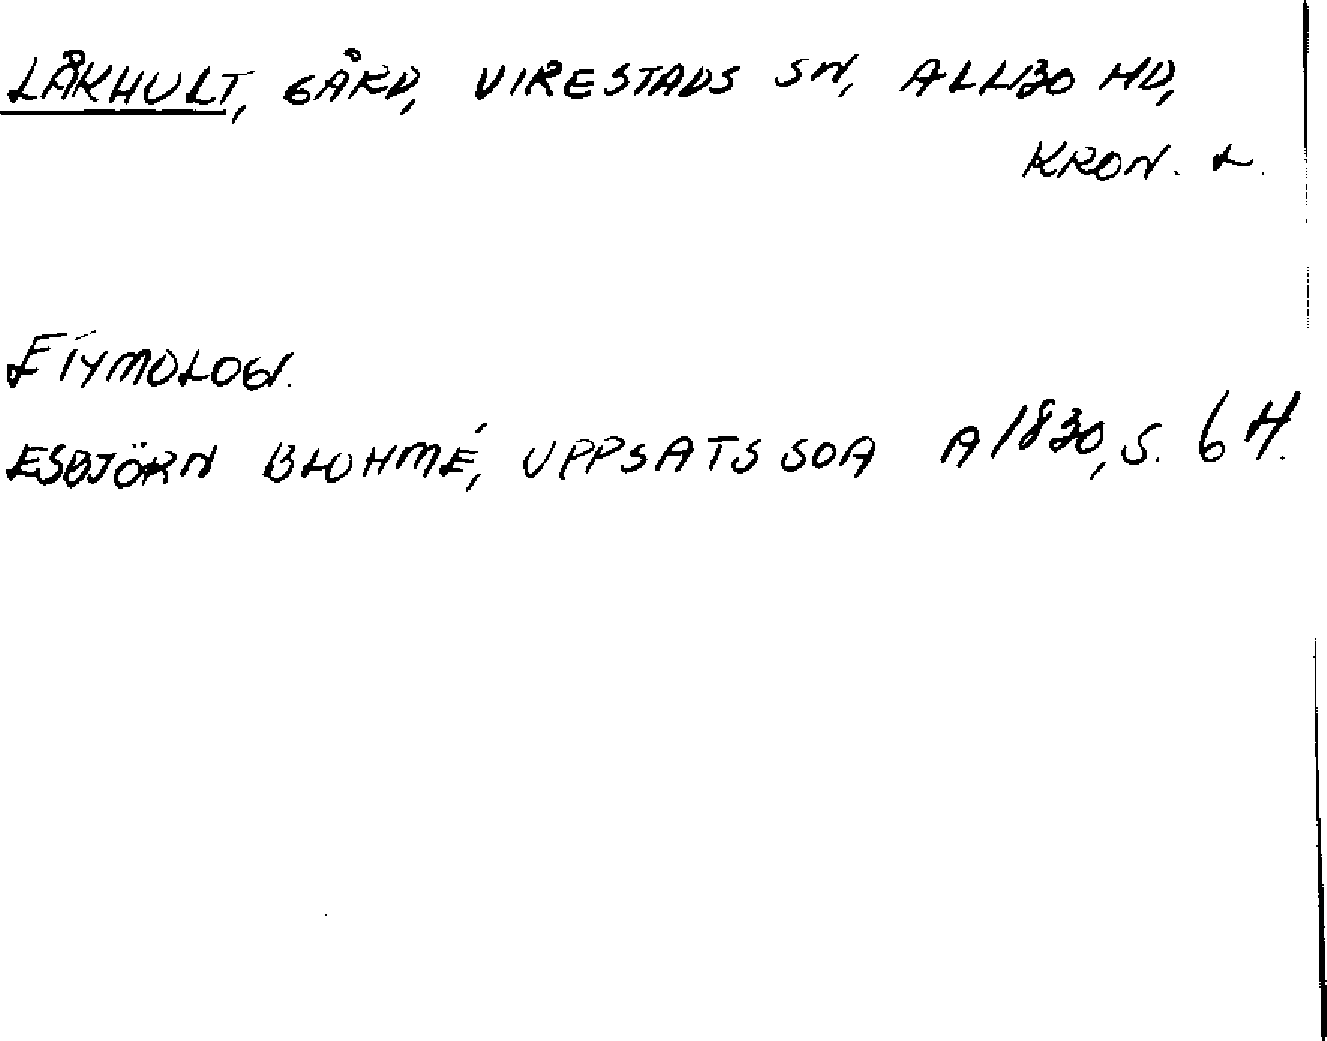 LÅKHULT, GÅRD, VIRESTADS SN, ALLBO HD,
KRON. L.
ETYMOLOGI.
ESBJÖRN BLOHMÉ, UPPSATS SOA A 1830, S. 6 H.